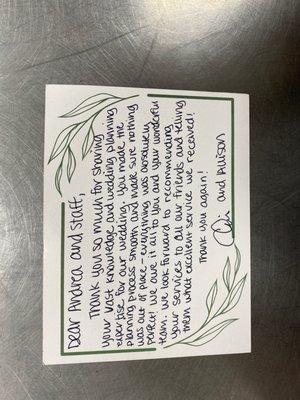 Dear Andrea and Staff,
Thank you so much for sharing
your vast knowledge and wedding planning
expertise for our wedding. You made the
planning process smooth and made sure nothing
was out of place. Everything was absolutely
perfect! We owe it all to you and your wonderful
team. We look forward to recommending
your services to all our friends and telling
them what excellent service we received!
Thank you again!
and Allison